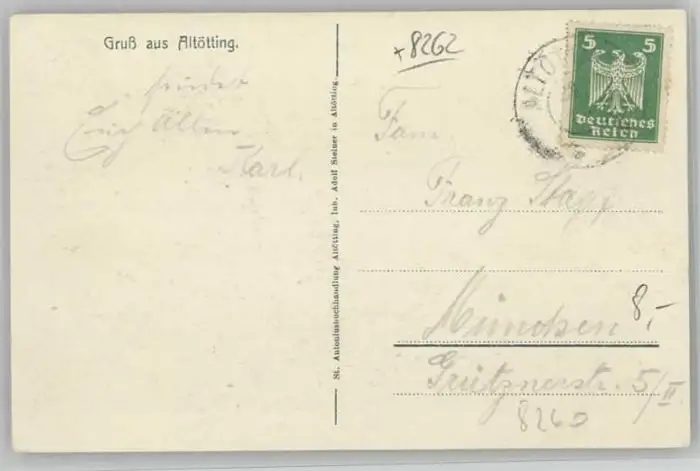 Gruß aus Altötting.
sendet
Euch Allen
Karl.
St. Antoniusbuchhandlung Altötting, Inh. Adolf Steiner in Altötting.
+8262
5 5
Deutsches
Reich
ALTÖ
Fam.
Franz
8,-
München
Grütznerstr. 5/II
8260